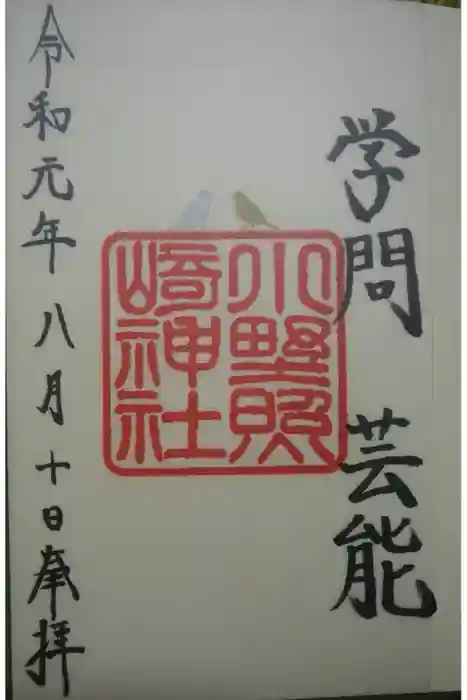 学問 芸能
小野照
崎神社
令和元年 八月 十日 奉拝